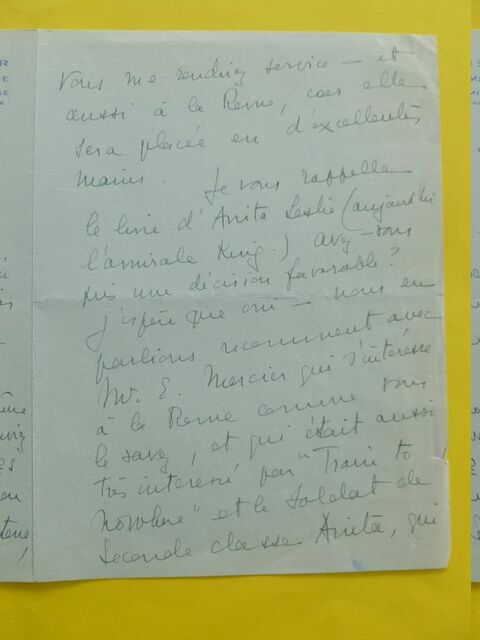 vous me rendriez service – et
aussi à la Revue, car elle
sera placée en d'excellentes
mains. Je vous rappelle
le livre d'Anita Leslie (aujourd'hui
l'amirale King.) avez-vous
pris une décision favorable?
J'espère que oui – nous en
parlions récemment avec
Mr. E. Mercier qui s'intéresse
à la Revue comme vous
le savez, et qui était aussi
très intéressé par "Train to
Nowhere" et le soldat de
seconde classe Anita, qui